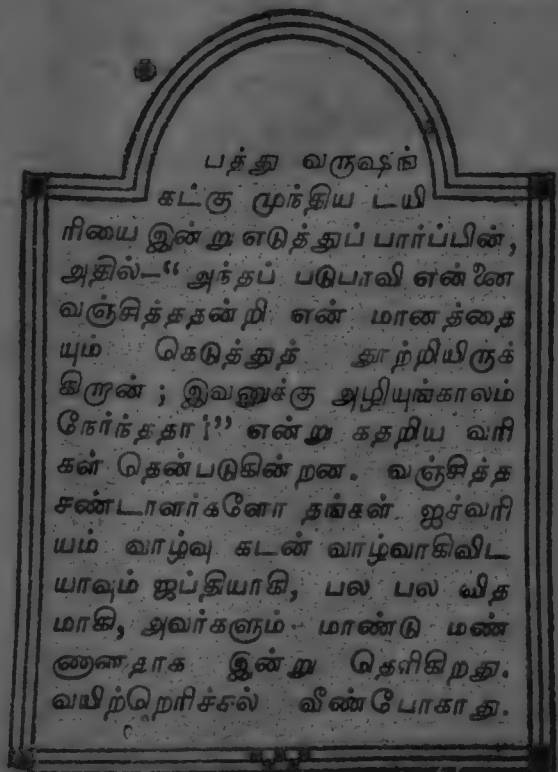 பத்து வருஷங்
கட்கு முந்திய டயி
ரியை இன்று எடுத்துப் பார்ப்பின்,
அதில்—“அந்தப் படுபாவி என்னை
வஞ்சித்ததன்றி என் மானத்தை
யும் கெடுத்துத் தூற்றியிருக்
கிறான்; இவனுக்கு அழியுங்காலம்
நேர்ந்ததா!” என்று கதறிய வரி
கள் தென்படுகின்றன. வஞ்சித்த
சண்டாளர்களோ தங்கள் ஐச்வரி
யம் வாழ்வு கடன் வாழ்வாகிவிட
யாவும் ஜப்தியாகி, பல பல வித
மாகி, அவர்களும் மாண்டு மண்
ணானதாக இன்று தெரிகிறது.
வயிற்றெரிச்சல் வீண்போகாது.